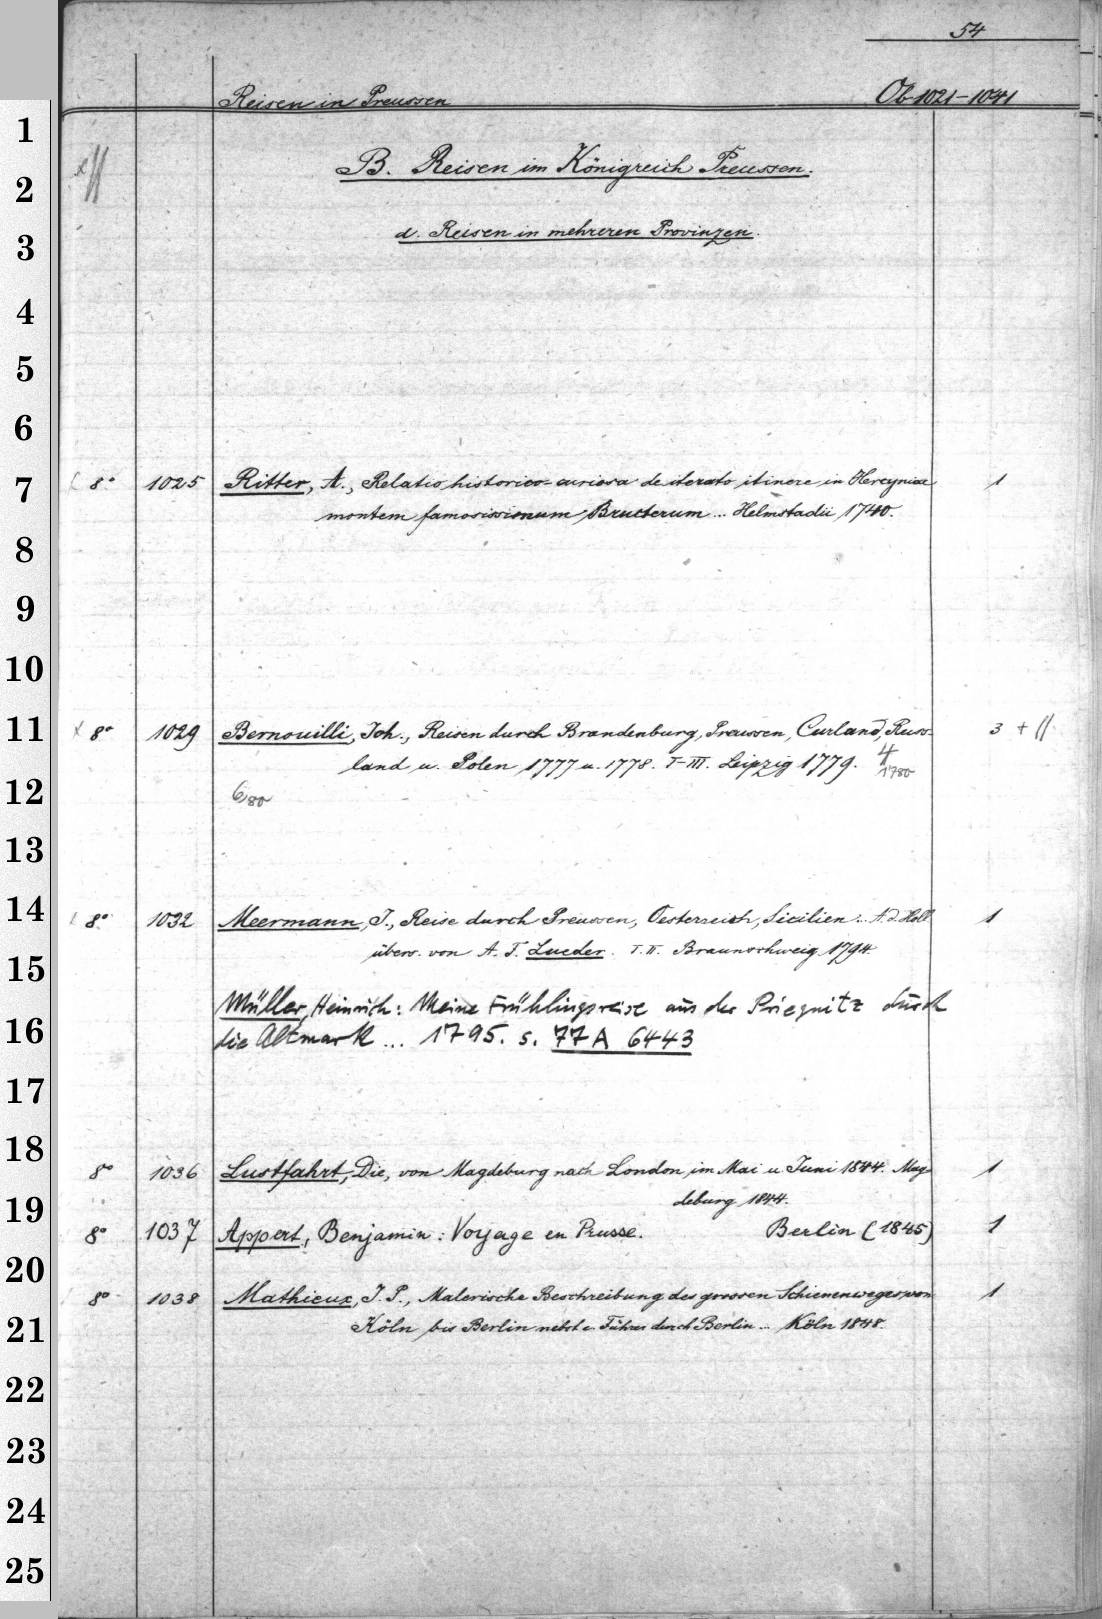 54
Reisen in Preussen Ob 1021-1041
B. Reisen im Königreich Preussen.
d. Reisen in mehreren Provinzen.
8° 1025 Ritter, A., Relatio historico-curiosa de iterato itinere in Hercyniae 1
montem famosissimum Bructerum ... Helmstadii 1740.
8° 1029 Bernouilli, Joh., Reisen durch Brandenburg, Preussen, Curland, Russ- 3 + 11
land u. Polen 1777 u. 1778. I-III. Leipzig 1779. 4
1780
6/80
8° 1032 Meermann, J., Reise durch Preussen, Oesterreich, Sicilien... A. d. Holl. 1
übers. von A. F. Lueder. I. II. Braunschweig 1794.
Müller, Heinrich: Meine Frühlingsreise aus der Priegnitz durch
die Altmark ... 1795. s. 77 A 6443
8° 1036 Lustfahrt, Die, von Magdeburg nach London im Mai u Juni 1844. Mag- 1
deburg 1844.
8° 1037 Appert, Benjamin: Voyage en Prusse. Berlin (1845) 1
8° 1038 Mathieux, J. P., Malerische Beschreibung des grossen Schienenweges von 1
Köln bis Berlin nebst e. Führer durch Berlin ... Köln 1848.
1
2
3
4
5
6
7
8
9
10
11
12
13
14
15
16
17
18
19
20
21
22
23
24
25